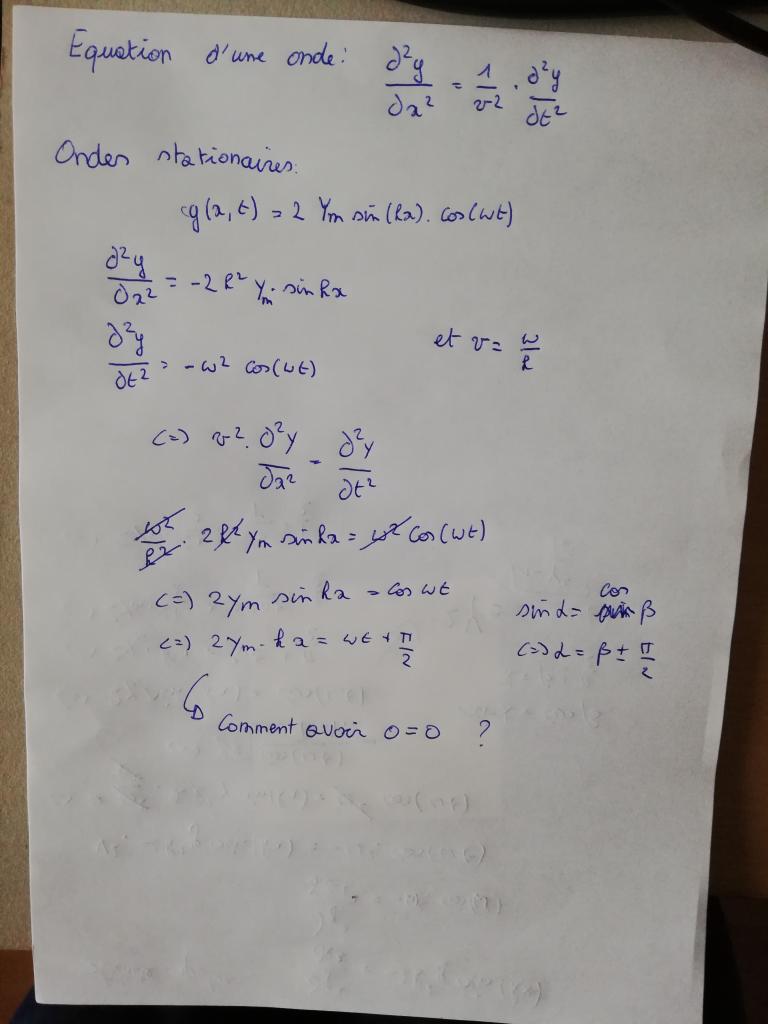 Equation d'une onde: ∂²y/∂x² = 1/v² . ∂²y/∂t²
Ondes stationaires:
y(x,t) = 2 Ym sin(kx). cos(ωt)
∂²y/∂x² = -2 k² Ym . sin kx
∂²y/∂t² = -ω² cos(ωt) et v = ω/k
<=> v² . ∂²y/∂x² = ∂²y/∂t²
ω²/k² . 2 k² Ym sin kx = ω² cos(ωt)
<=> 2 Ym sin kx = cos ωt
sin α = cos β
<=> 2 Ym . kx = ωt + π/2
<=> α = β ± π/2
Comment avoir 0=0 ?